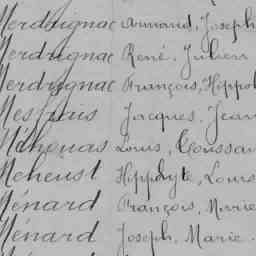 Merdrignac Armand, Joseph
Merdrignac René, Julien
Merdrignac François, Hippol
Mesfrais Jacques, Jean
Méhouas Louis, Toussai
Meheust Hippolyte, Louis
Ménard François, Marie
Ménard Joseph, Marie.